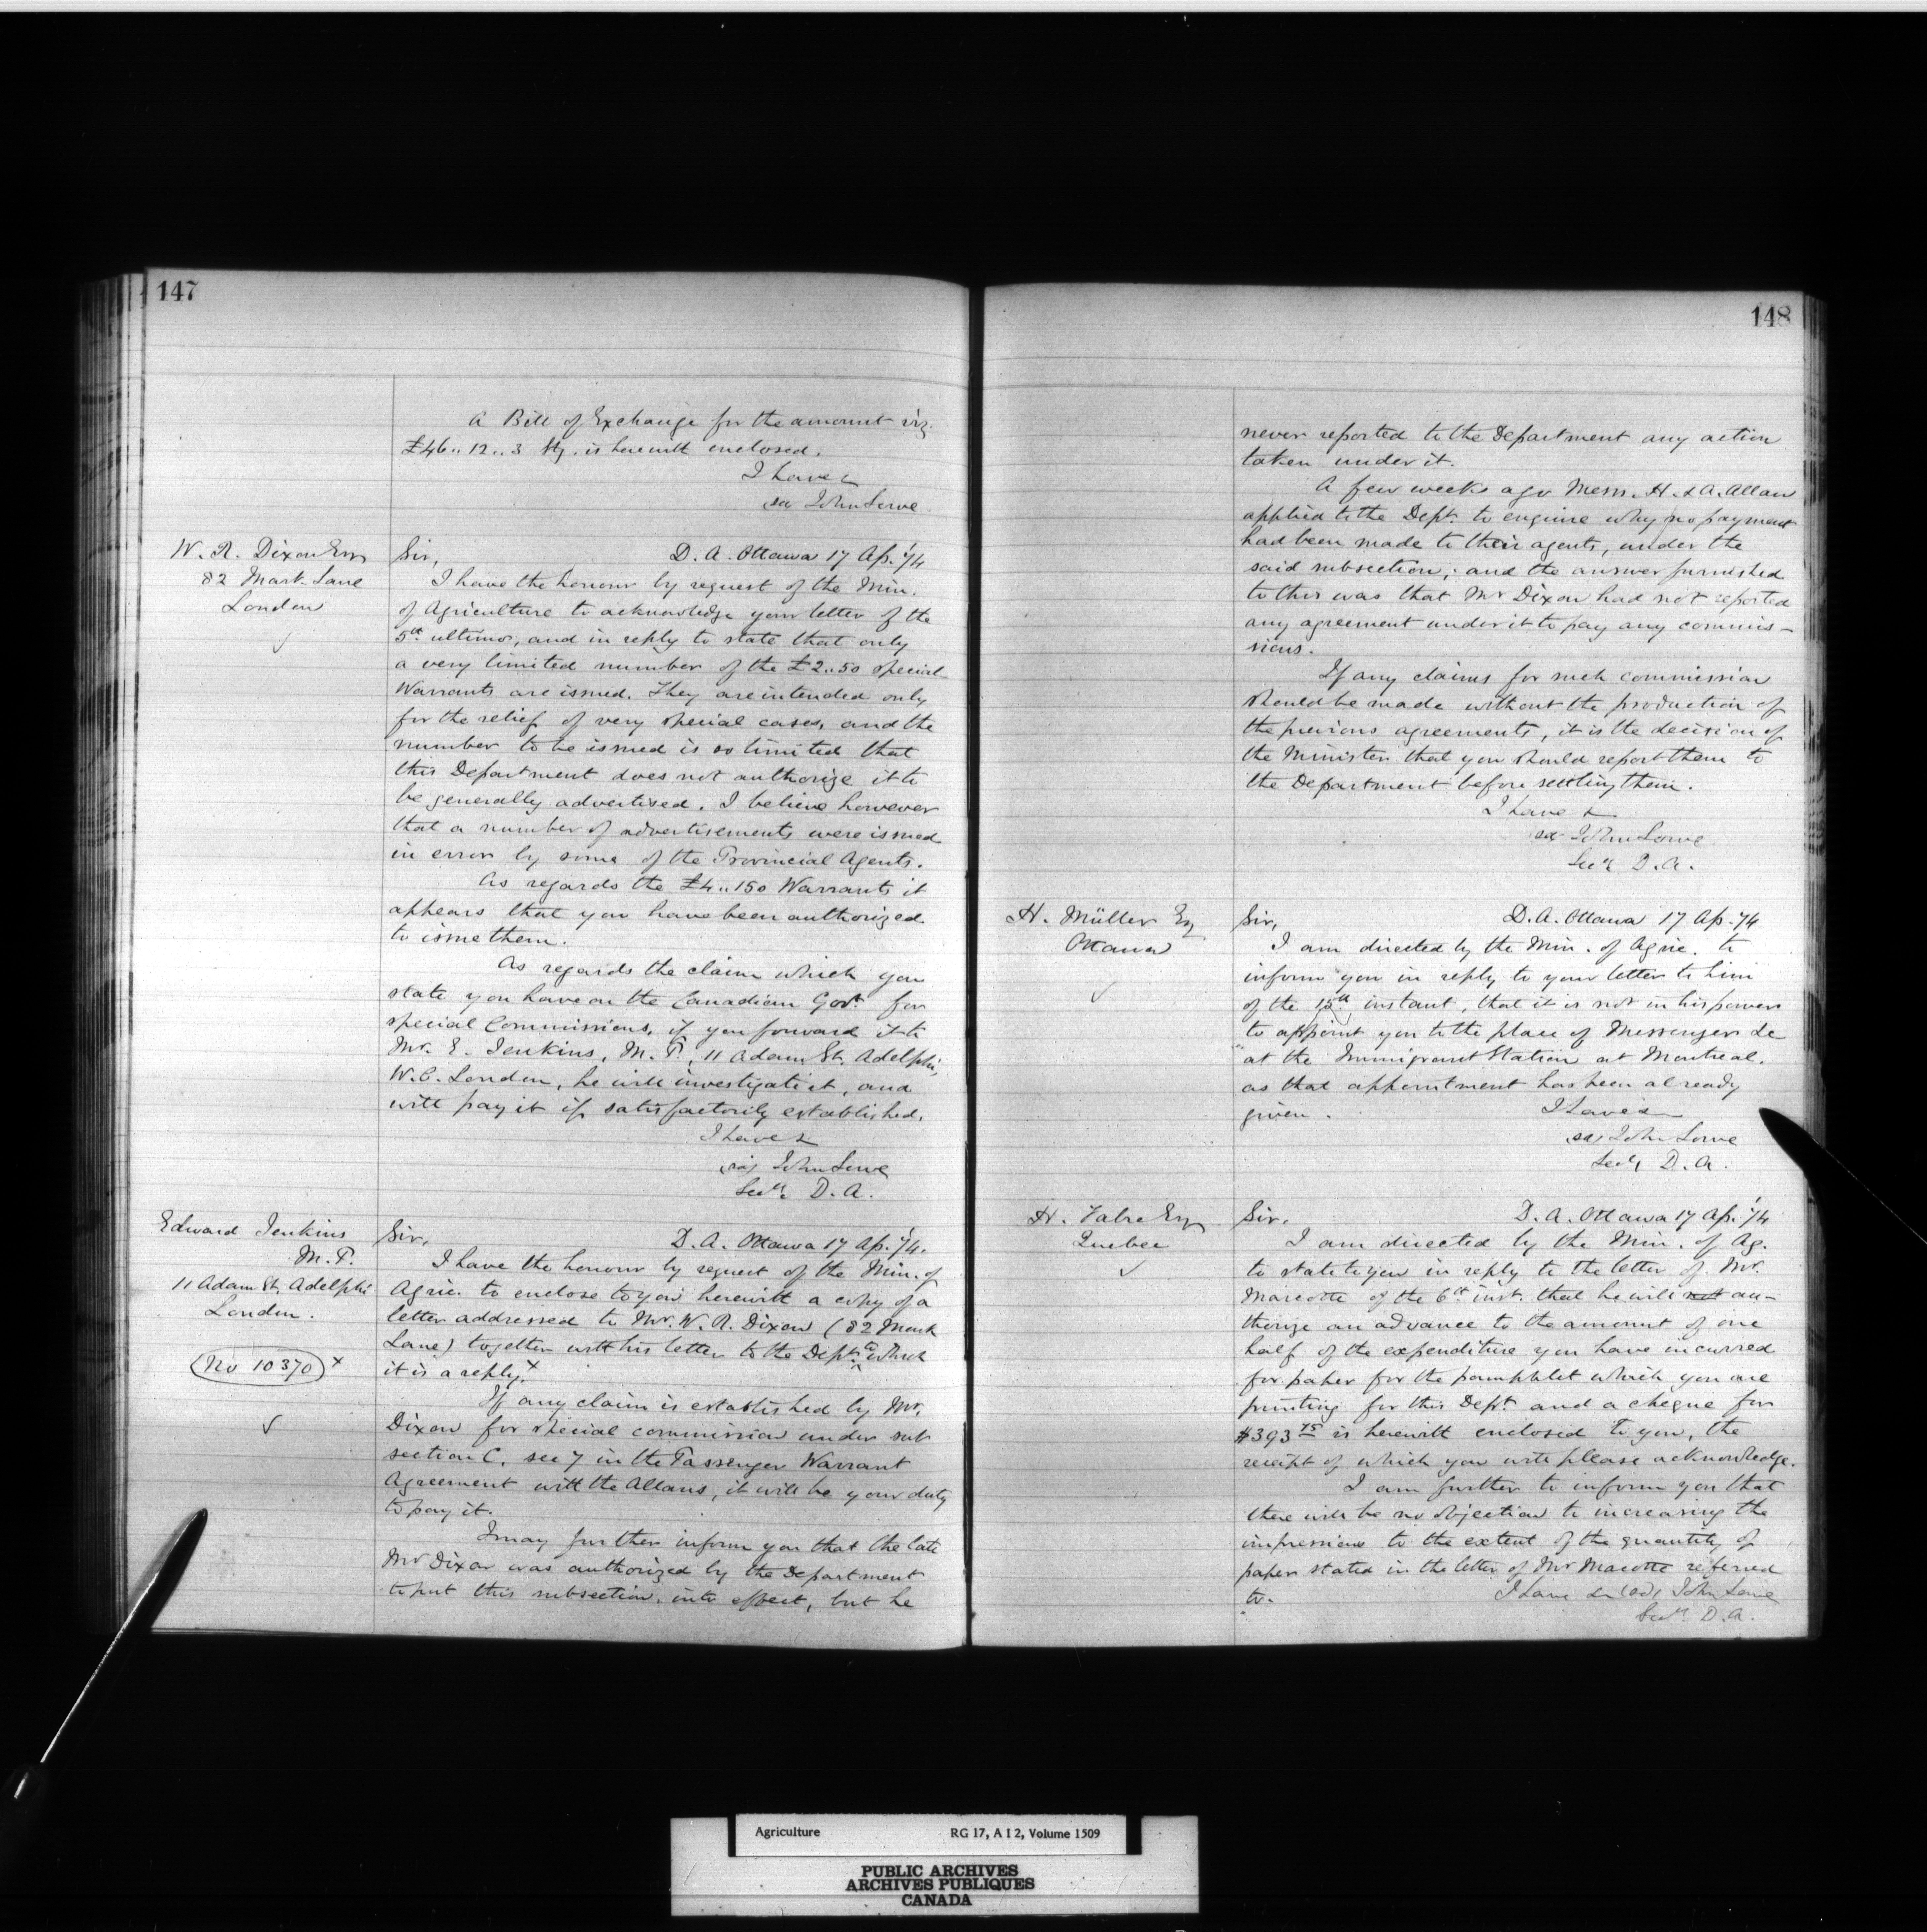 147
A Bill of Exchange for the amount viz.
£46.. 12.. 3 Stg. is herewith enclosed.
I have &
sd John Lowe.
W. R. Dixon Esq
82 Mark Lane
London
Sir, D. A. Ottawa 17 Ap. '74
I have the honour by request of the Min.
of Agriculture to acknowledge your letter of the
5th ultimo, and in reply to state that only
a very limited number of the £2..5o special
Warrants are issued. They are intended only
for the relief of very special cases, and the
number to be issued is so limited that
this Department does not authorize it to
be generally advertised. I believe however
that a number of advertisements were issued
in error by some of the Provincial Agents.
As regards the £4..15o Warrants it
appears that you have been authorized
to issue them.
As regards the claim which you
state you have on the Canadian Govt. for
special Commissions, if you forward it to
Mr. E. Jenkins, M.P., 11 Adam St. Adelphi,
W.C. London, he will investigate it, and
will pay it if satisfactorily established.
I have &
(sd) John Lowe
Secy. D. A.
Edward Jenkins
M.P.
11 Adam St. Adelphi
London.
No 10370 x
Sir, D. A. Ottawa 17 Ap. '74.
I have the honour by request of the Min. of
Agric. to enclose to you herewith a copy of a
letter addressed to Mr. W. R. Dixon (82 Mark
Lane) together with his letter to the Dept. to which
it is a reply. x
If any claim is established by Mr.
Dixon for special commission under sub
section C, sec 7 in the Passenger Warrant
Agreement with the Allans, it will be your duty
to pay it.
I may further inform you that the late
Mr Dixon was authorized by the Department
to put this subsection, into effect, but he
148
never reported to the Department any action
taken under it.
A few weeks ago Messrs. H. & A. Allan
applied to the Dept. to enquire why no payment
had been made to their agents, under the
said subsection; and the answer furnished
to this was that Mr Dixon had not reported
any agreement under it to pay any commis-
sions.
If any claims for such commission
should be made without the production of
the previous agreements, it is the decision of
the Minister that you should report them to
the Department before settling them.
I have &
sd John Lowe
Secy D. A.
H. Müller Esq
Ottawa
Sir, D. A. Ottawa 17 Ap. '74
I am directed by the Min. of Agric. to
inform you in reply to your letter to him
of the 15th instant, that it is not in his power
to appoint you to the place of Messenger &c
at the Immigrant Station at Montreal,
as that appointment has been already
given. I have &
(sd) John Lowe
Secy D. A.
H. Fabre Esq
Quebec
Sir. D. A. Ottawa 17 Ap. '74
I am directed by the Min. of Ag.
to state to you in reply to the letter of Mr.
Marcotte of the 6th inst. that he will not au-
thorize an advance to the amount of one
half of the expenditure you have incurred
for paper for the pamphlet which you are
printing for this Dept. and a cheque for
$393 75 is herewith enclosed to you, the
receipt of which you will please acknowledge.
I am further to inform you that
there will be no objection to increasing the
impressions to the extent of the quantity of
paper stated in the letter of Mr Marcotte referred
to. I have &c (sd) John Lowe
Secy. D. A.
Agriculture RG 17, A I 2, Volume 1509
PUBLIC ARCHIVES
ARCHIVES PUBLIQUES
CANADA